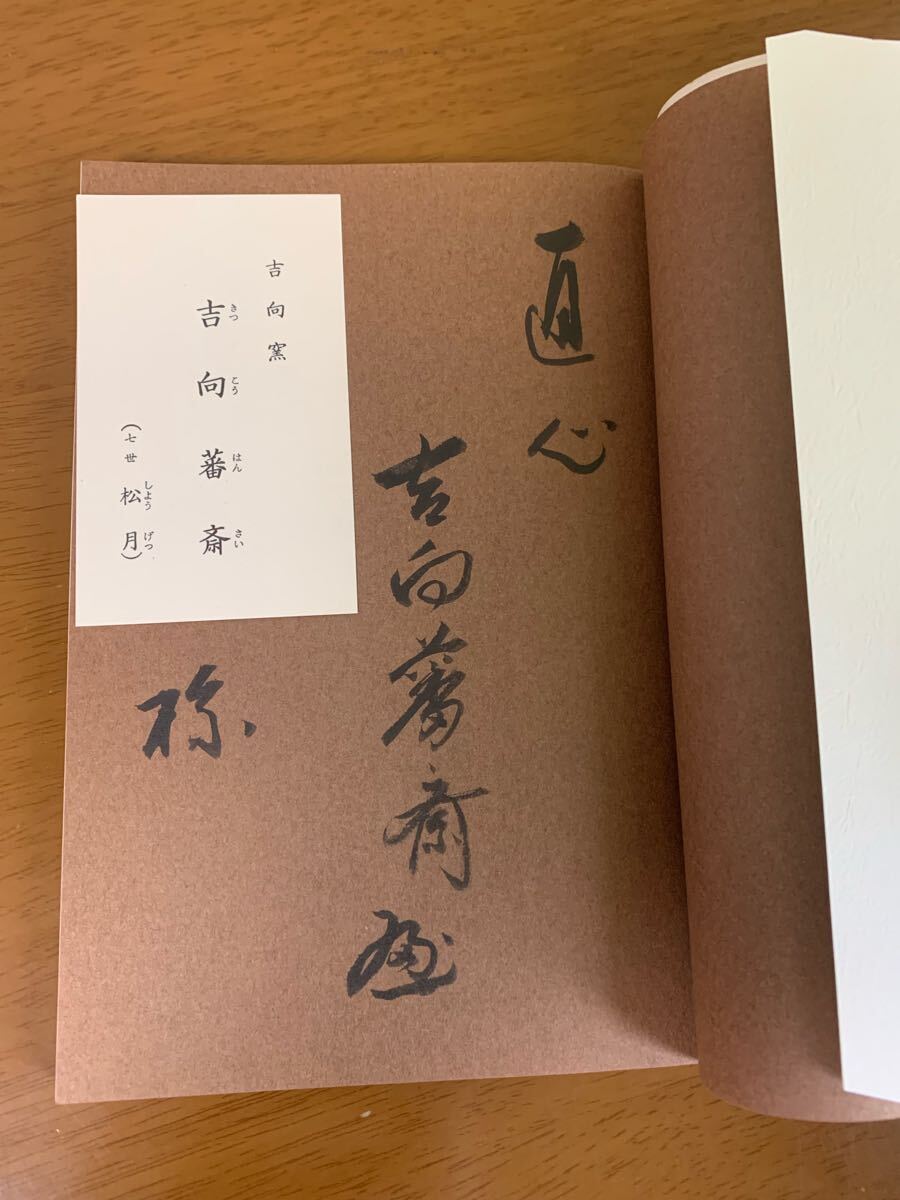 直心
吉向蕃斎
様
吉向窯
吉向蕃斎
きつこうはんさい
(七世松月)
しようげつ